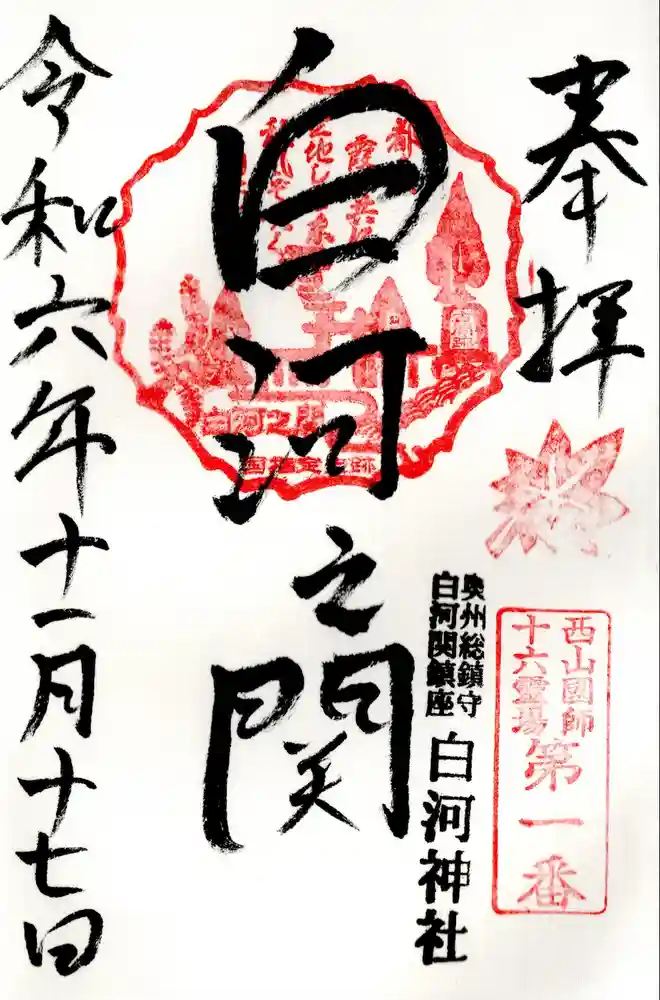 奉拝
西山國師
十六霊場
第一番
奥州総鎮守
白河関鎮座
白河神社
白河之関
白河之関
国指定史跡
令和六年十一月十七日